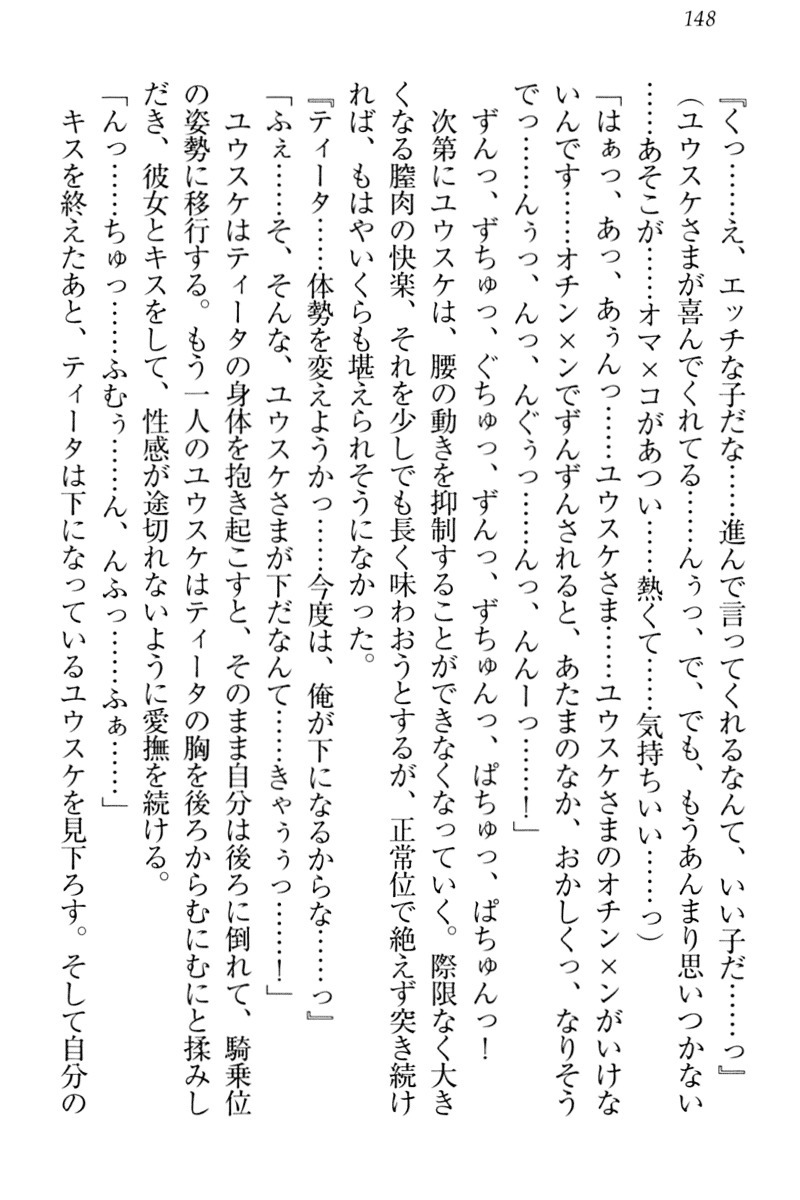 148
『くっ……え、エッチな子だな……進んで言ってくれるなんて、いい子だ……っ』
（ユウスケさまが喜んでくれてる……んぅっ、で、でも、もうあんまり思いつかない
……あそこが……オマ×コがあつい……熱くて……気持ちいい……っ）
「はぁっ、あっ、あぅんっ……ユウスケさま……ユウスケさまのオチン×ンがいけな
いんです……オチン×ンでずんずんされると、あたまのなか、おかしくっ、なりそう
でっ……んぅっ、んっ、んぐぅっ……んっ、んんーっ……！」
ずんっ、ずちゅっ、ぐちゅっ、ずんっ、ずちゅんっ、ぱちゅっ、ぱちゅんっ！
次第にユウスケは、腰の動きを抑制することができなくなっていく。際限なく大き
くなる膣肉の快楽、それを少しでも長く味わおうとするが、正常位で絶えず突き続け
れば、もはやいくらも堪えられそうになかった。
『ティータ……体勢を変えようかっ……今度は、俺が下になるからな……っ』
「ふぇ……そ、そんな、ユウスケさまが下だなんて……きゃぅぅっ……！」
ユウスケはティータの身体を抱き起こすと、そのまま自分は後ろに倒れて、騎乗位
の姿勢に移行する。もう一人のユウスケはティータの胸を後ろからむにむにと揉みし
だき、彼女とキスをして、性感が途切れないように愛撫を続ける。
「んっ……ちゅっ……ふむぅ……ん、んふっ……ふぁ……」
キスを終えたあと、ティータは下になっているユウスケを見下ろす。そして自分の